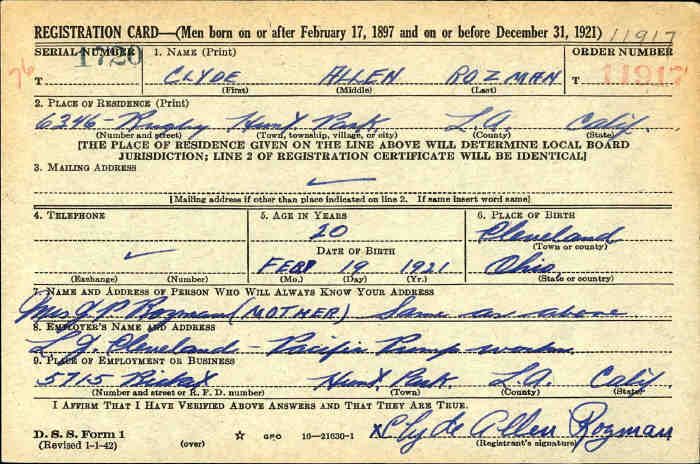 REGISTRATION CARD—(Men born on or after February 17, 1897 and on or before December 31, 1921) 11917
SERIAL NUMBER 1. NAME (Print) ORDER NUMBER
76 T 1720 CLYDE ALLEN ROZMAN T 11917
(First) (Middle) (Last)
2. PLACE OF RESIDENCE (Print)
6346- Rugby Hunt. Park. L.A. Calif.
(Number and street) (Town, township, village, or city) (County) (State)
[THE PLACE OF RESIDENCE GIVEN ON THE LINE ABOVE WILL DETERMINE LOCAL BOARD
JURISDICTION; LINE 2 OF REGISTRATION CERTIFICATE WILL BE IDENTICAL]
3. MAILING ADDRESS
✓
[Mailing address if other than place indicated on line 2. If same insert word same]
4. TELEPHONE 5. AGE IN YEARS 6. PLACE OF BIRTH
20 Cleveland
✓ DATE OF BIRTH (Town or county)
FEB 19 1921 Ohio
(Exchange) (Number) (Mo.) (Day) (Yr.) (State or country)
7. NAME AND ADDRESS OF PERSON WHO WILL ALWAYS KNOW YOUR ADDRESS
Mrs J. P. Rozman (MOTHER) Same as above
8. EMPLOYER'S NAME AND ADDRESS
Cleveland - Pacific Pump works
9. PLACE OF EMPLOYMENT OR BUSINESS
5715 Hunt. Park. L.A. Calif.
(Number and street or R. F. D. number) (Town) (County) (State)
I AFFIRM THAT I HAVE VERIFIED ABOVE ANSWERS AND THAT THEY ARE TRUE.
D. S. S. Form 1
(Revised 1-1-42) (over) ☆ GPO 16—21630-1 x Clyde Allen Rozman
(Registrant's signature)